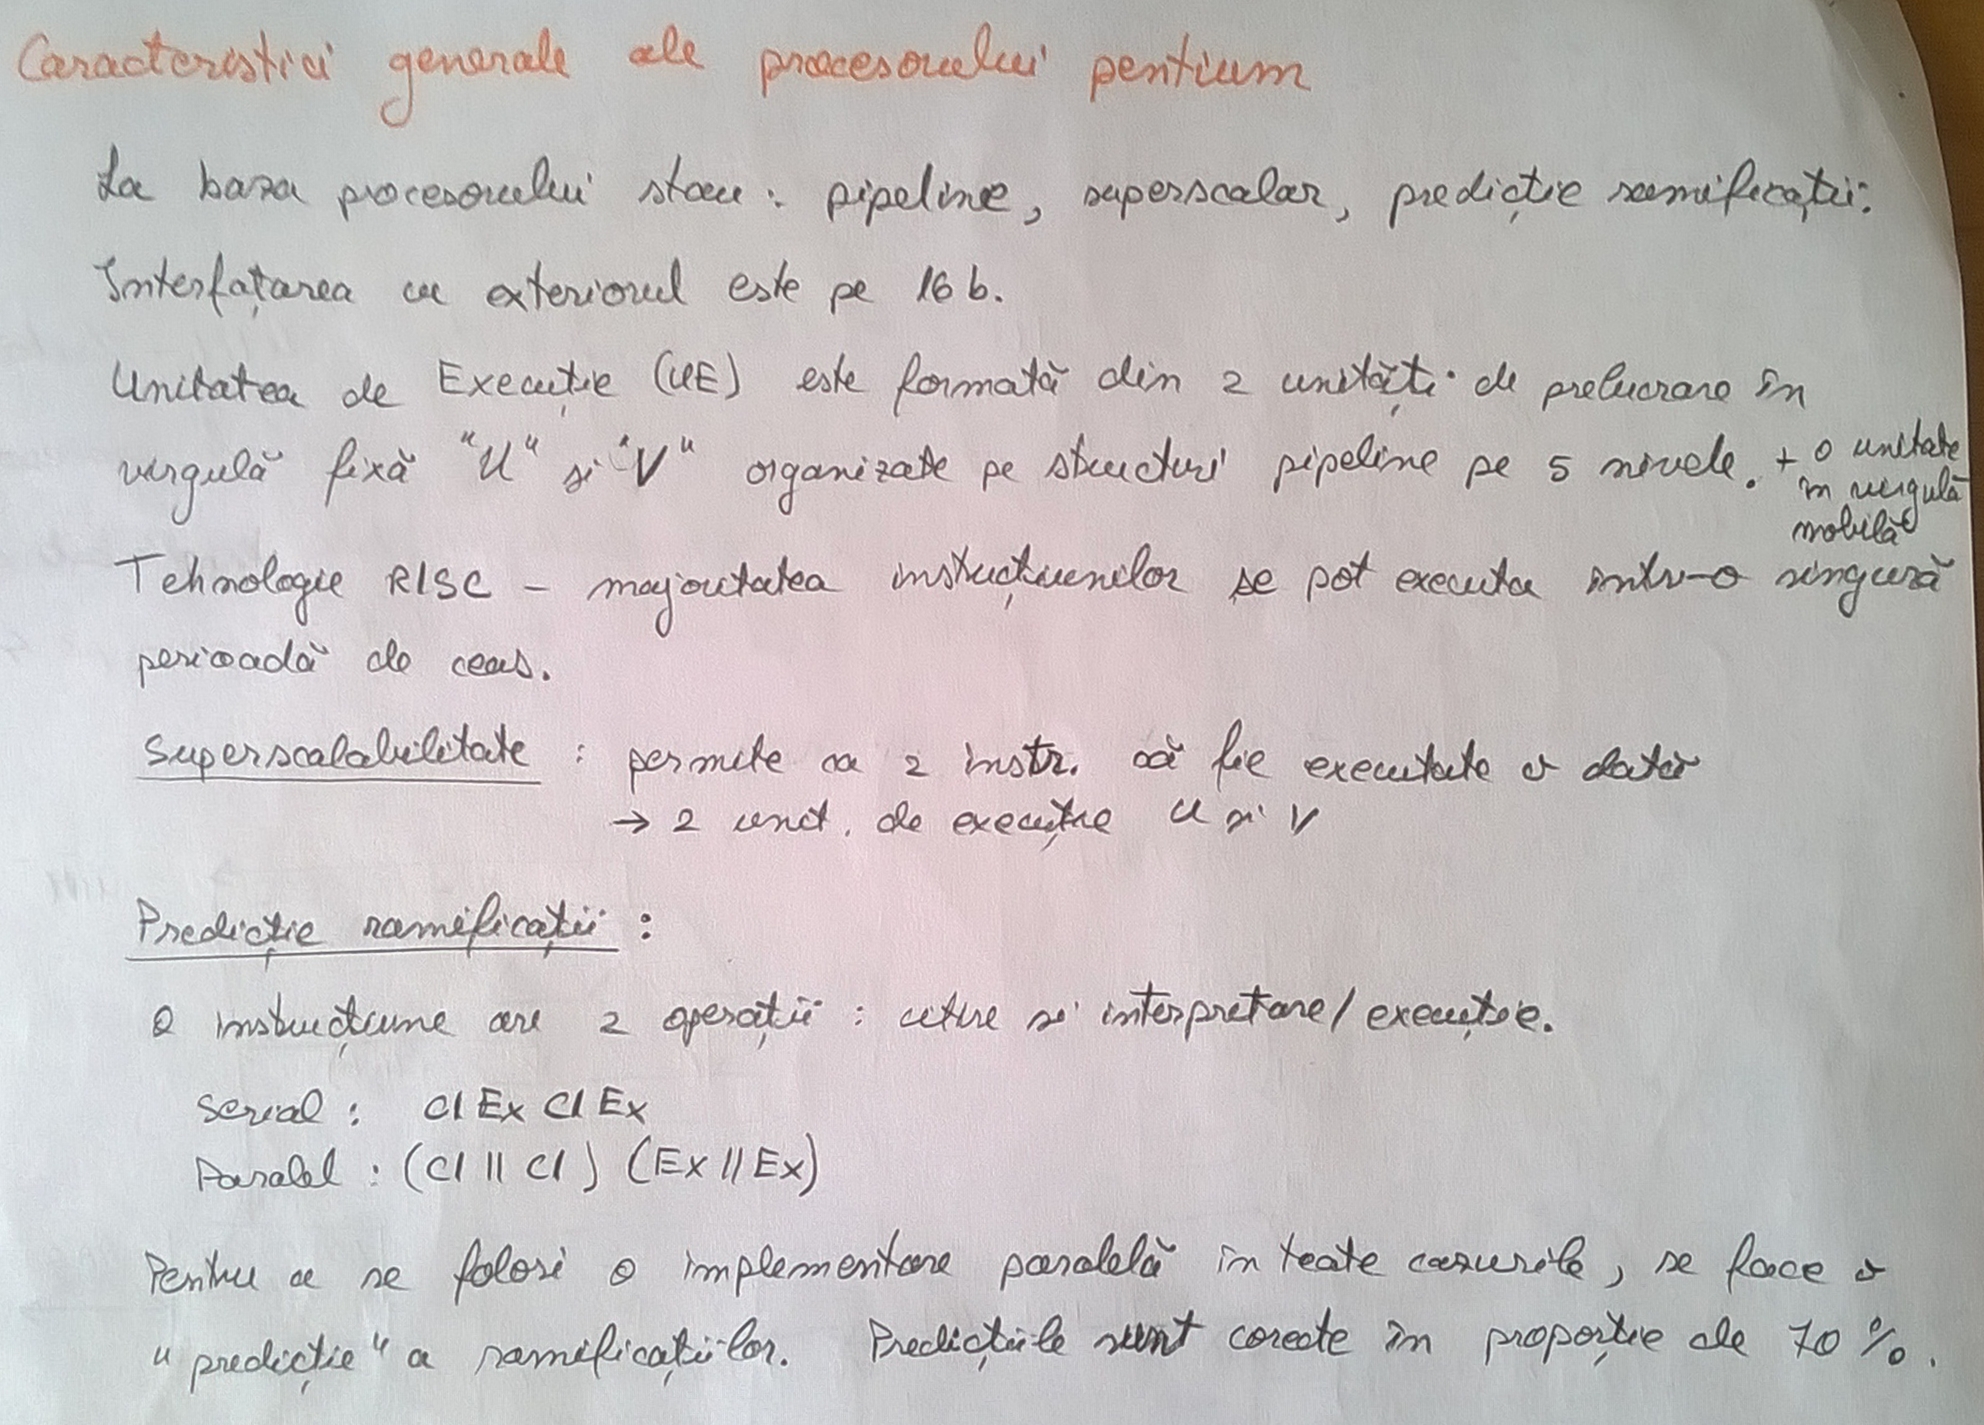 Caracteristici generale ale procesorului pentium
La baza procesorului stau : pipeline, superscalar, predicție ramificații.
Interfațarea cu exteriorul este pe 16 b.
Unitatea de Execuție (UE) este formată din 2 unități de prelucrare în
virgulă fixă "U" și "V" organizate pe structuri pipeline pe 5 nivele. + o unitate
în virgulă
mobilă
Tehnologie RISC - majoritatea instrucțiunilor se pot executa într-o singură
perioadă de ceas.
Superscalabilitate : permite ca 2 instr. să fie executate o dată
→ 2 unit. de execuție U și V
Predicție ramificații :
O instrucțiune are 2 operații : citire și interpretare/execuție.
Serial : CI Ex CI Ex
Paralel : (CI || CI) (Ex // Ex)
Pentru a se folosi o implementare paralelă în toate cazurile, se face o
"predicție" a ramificațiilor. Predicțiile sunt corecte în proporție de 70 %.